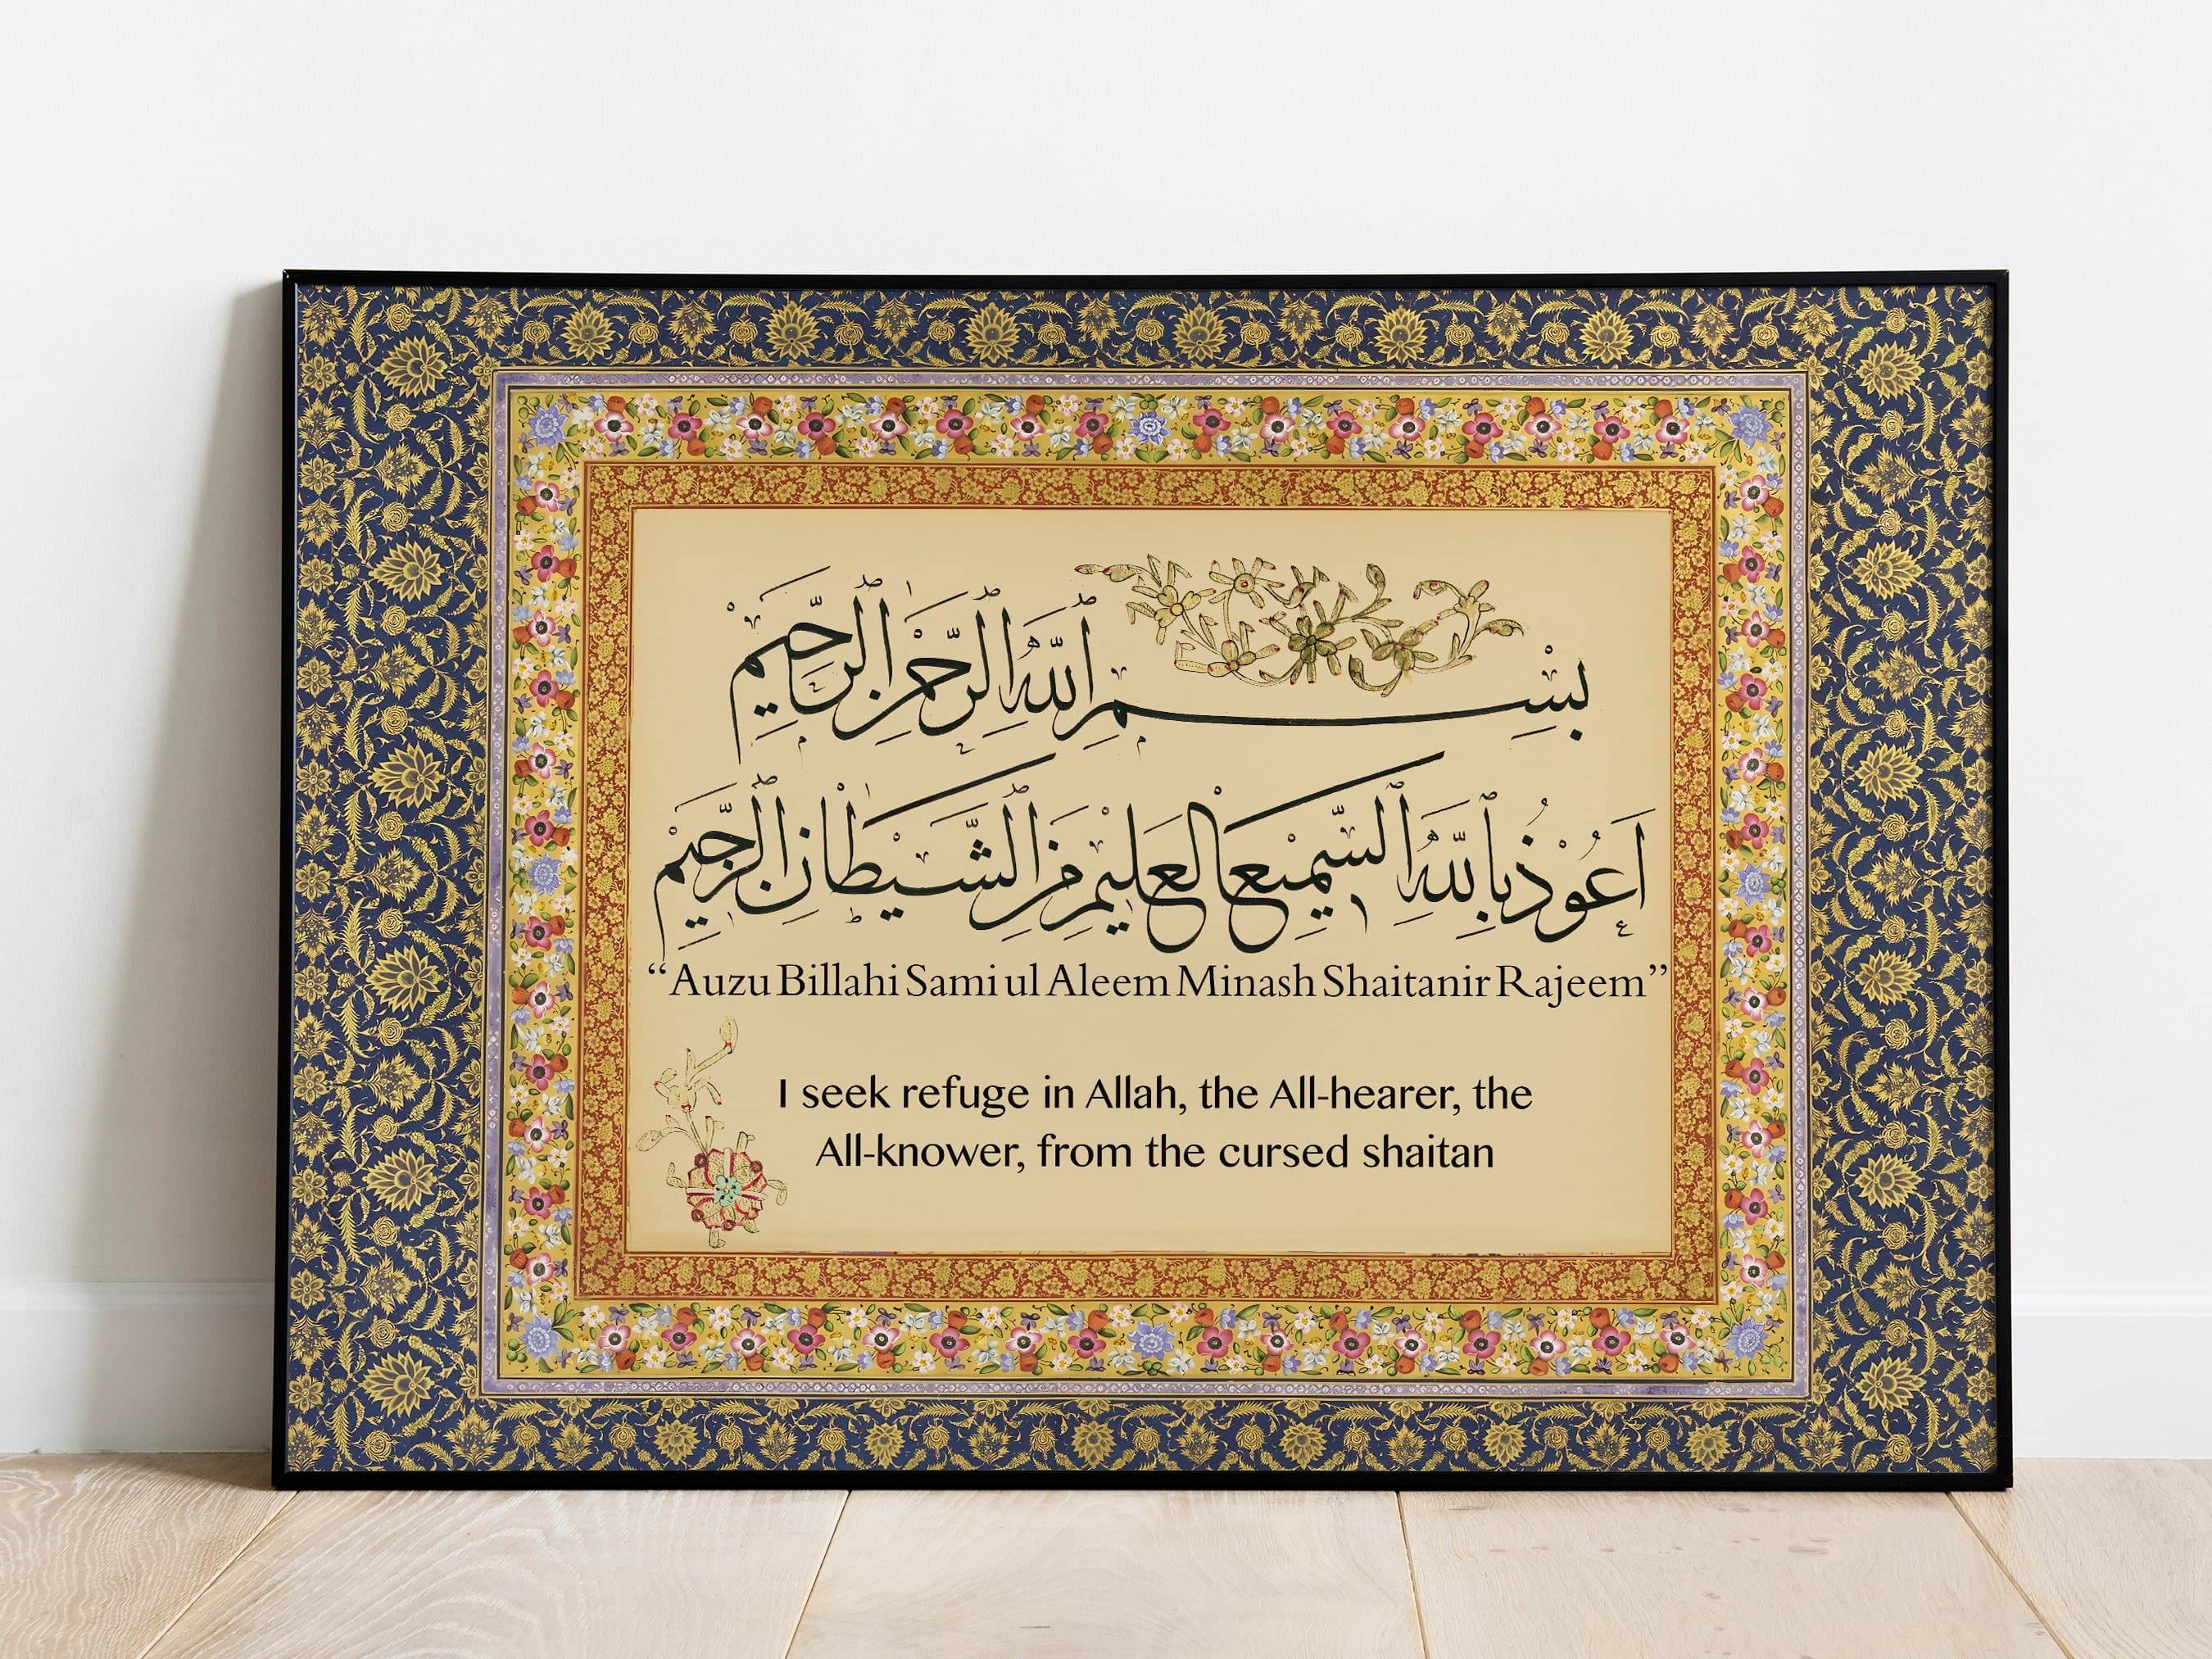 بِسْمِ ٱللَّهِ ٱلرَّحْمَٰنِ ٱلرَّحِيمِ
اَعُوْذُ بِٱللَّهِ ٱلسَّمِيْعِ الْعَلِيْمِ مِنَ ٱلشَّيْطَانِ ٱلرَّجِيْمِ
“Auzu Billahi Sami ul Aleem Minash Shaitanir Rajeem”
I seek refuge in Allah, the All-hearer, the
All-knower, from the cursed shaitan